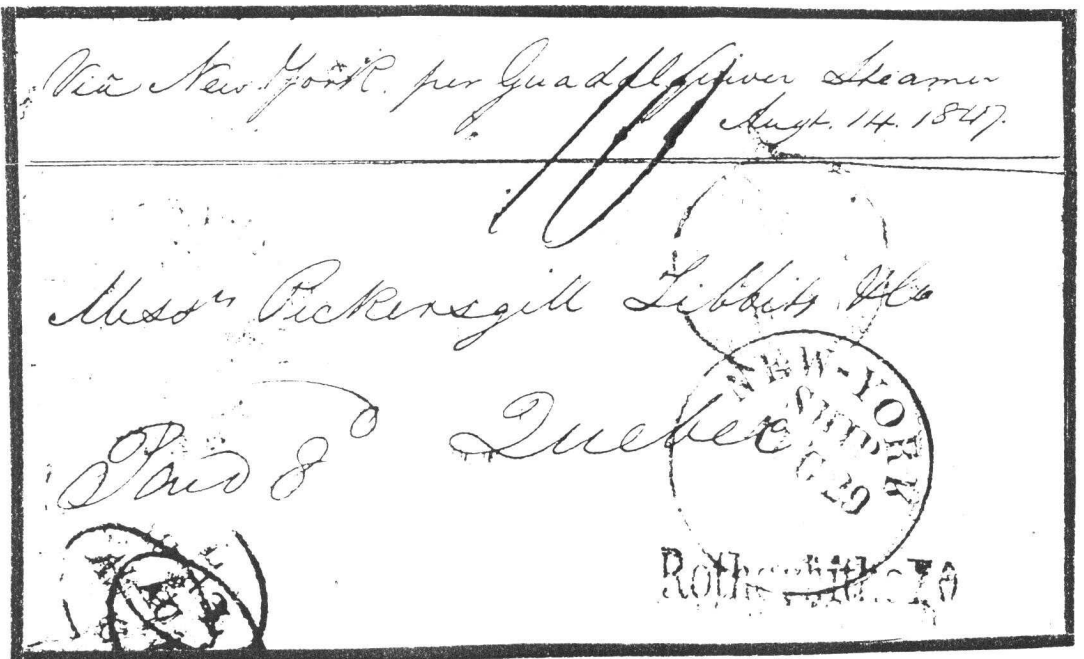 Via New York. per Guadalquiver Steamer
Augt. 14. 1847.
10
Messrs Pickersgill Tibbits & Co
Quebec
Paid 8
NEW-YORK
SHIP
29